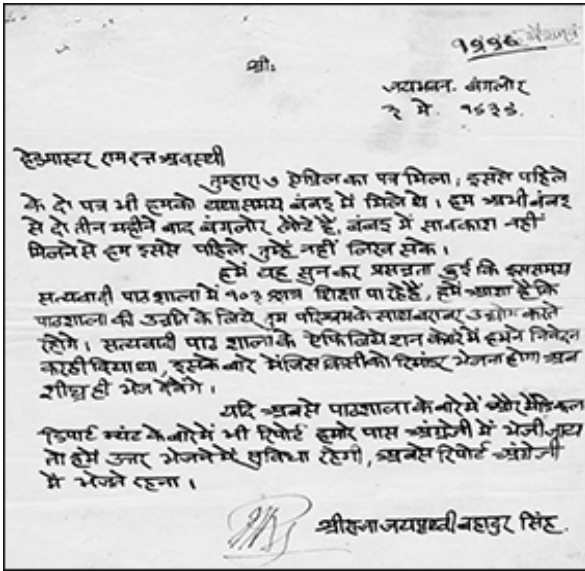 १९९६ वैशाख
श्रीः
जयभवन. बंगलोर
२ मे. १९३९.
हेडमास्टर रामदत्त अवस्थी
तुम्हारा ७ ऐप्रिल का पत्र मिला, इससे पहिले
के दो पत्र भी हमको यथासमय बंबई में मिले थे। हम अभी बंबई
से दो तीन महीने बाद बंगलोर लौटे हैं, बंबई में सावकाश नहीं
मिलने से हम इससे पहिले तुम्हें नहीं लिख सके।
हमें यह सुन कर प्रसन्नता हुई कि इससमय
सत्यवादी पाठशाला में १०३ छात्र शिक्षा पा रहे हैं, हमें आशा है कि
पाठशाला की उन्नति के लिये तुम परिश्रम के साथ बराबर उद्योग करते
रहोगे। सत्यवादी पाठ शाला के ऐफिलियेशन के बारे में हमने निवेदन
कर ही दिया था, इसके बारे में जिस किसी को रिमांडर भेजना होगा अब
शीघ्र ही भेज देवेंगे।
यदि अबसे पाठशाला के बारे में और मेडिकल
डिपार्ट म्यंट के बारे में भी रिपोर्ट हमारे पास अंग्रेजी में भेजी जाय
तो हमें उत्तर भेजने में सुविधा रहेगी, अबसे रिपोर्ट अंग्रेजी
में भेजते रहना।
श्रीराजा जयपृथ्वी बहादुर सिंह.